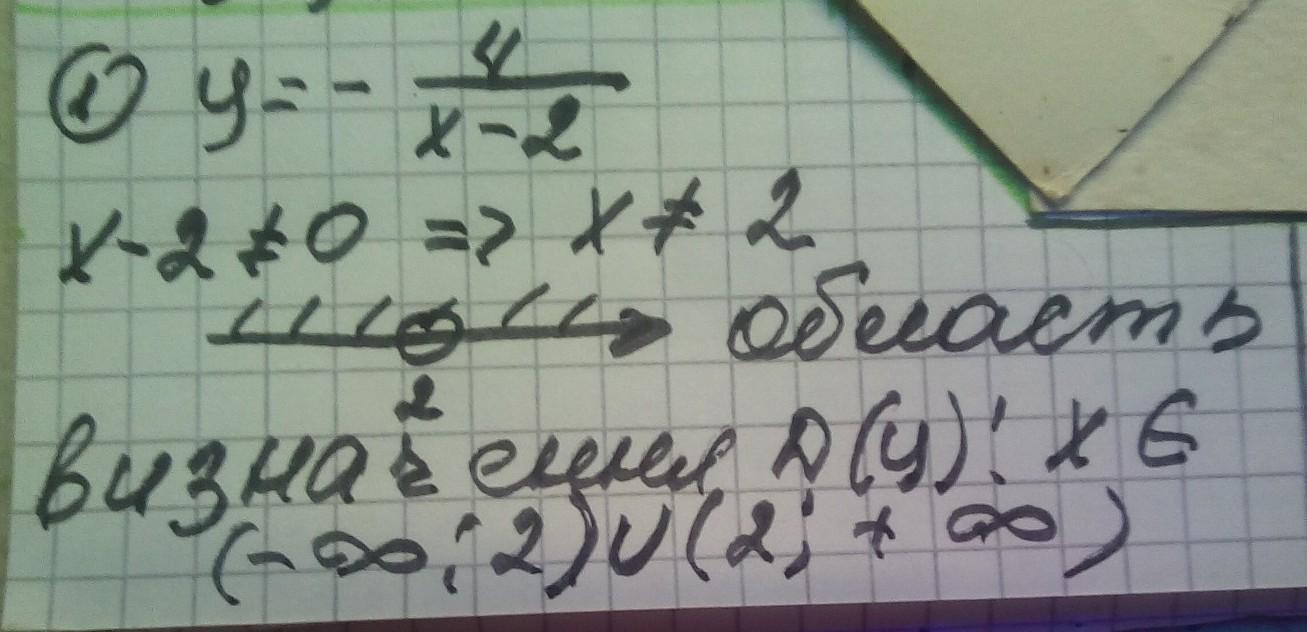 ① y = - 4/(x-2)
x-2≠0 => x≠2
область
2
визначення D(y): x∈
(-∞; 2)∪(2; +∞)